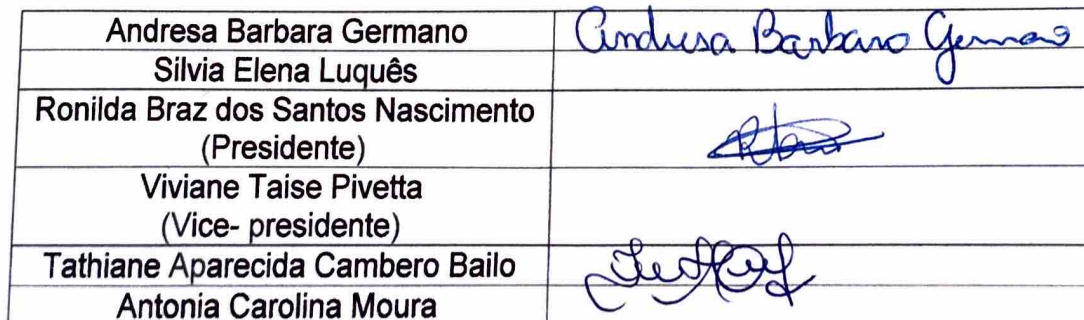 Andresa Barbara Germano Andresa Barbara Germano
Silvia Elena Luquês
Ronilda Braz dos Santos Nascimento
(Presidente)
Viviane Taise Pivetta
(Vice- presidente)
Tathiane Aparecida Cambero Bailo
Antonia Carolina Moura